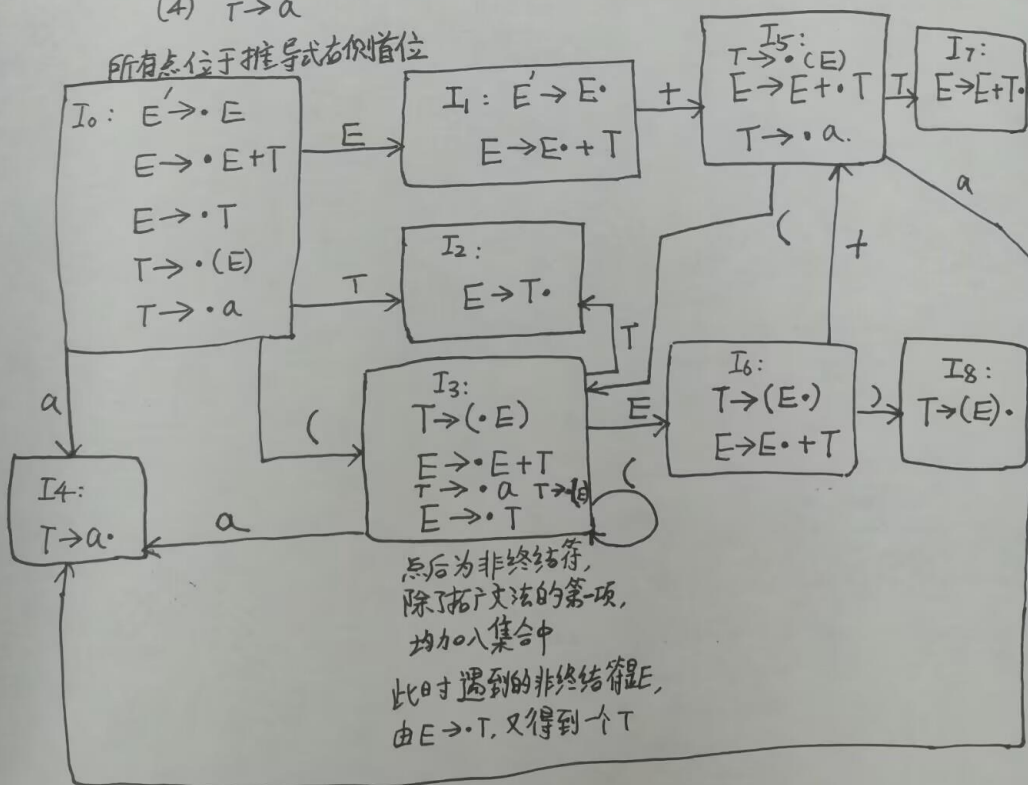 (4) T→a
所有点位于推导式右侧首位
I0: E'→·E
E→·E+T
E→·T
T→·(E)
T→·a
E
I1: E'→E·
E→E·+T
+
I5:
T→·(E)
E→E+·T
T→·a.
T
I7:
E→E+T·
a
(
+
T
I2:
E→T·
T
a
(
I3:
T→(·E)
E→·E+T
T→·a T→·(E)
E→·T
E
(
I6:
T→(E·)
E→E·+T
)
I8:
T→(E)·
I4:
T→a·
a
点后为非终结符,
除了拓广文法的第一项,
均加入集合中
此时遇到的非终结符是E,
由E→·T,又得到一个T